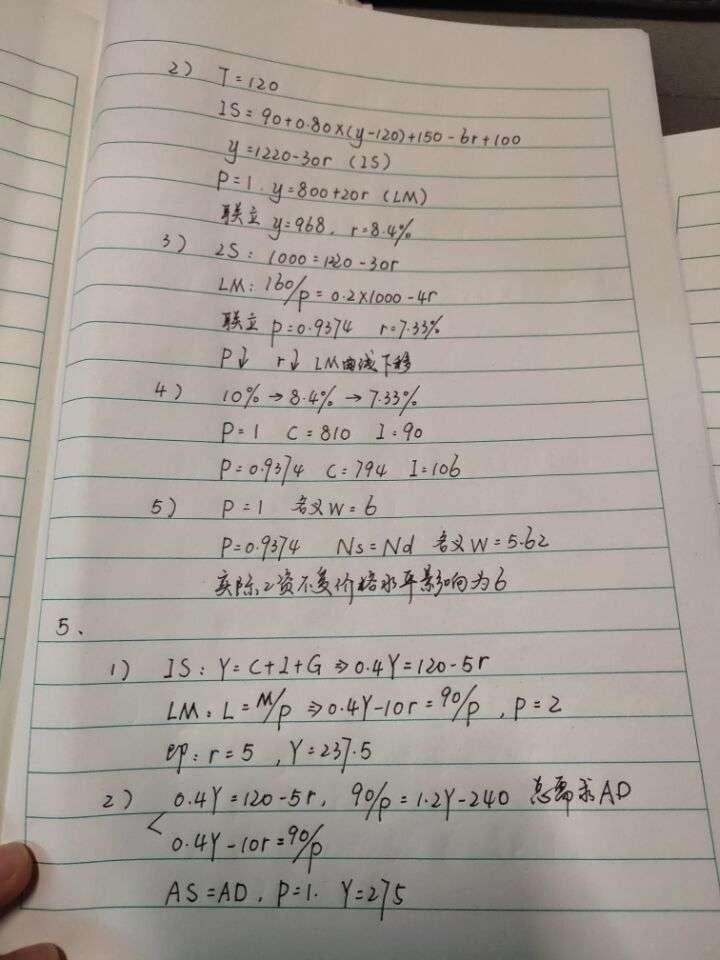 2) T=120
IS=90+0.80×(y-120)+150-6r+100
y=1220-30r (IS)
P=1. y=800+20r (LM)
联立 y=968, r=8.4%
3) IS: 1000=1220-30r
LM: 160/p=0.2×1000-4r
联立 p=0.9374 r=7.33%
P↓ r↓ LM曲线下移
4) 10%→8.4%→7.33%
P=1 C=810 I=90
P=0.9374 C=794 I=106
5) P=1 名义W=6
P=0.9374 Ns=Nd 名义W=5.62
实际工资不受价格水平影响为6
5、
1) IS: Y=C+I+G⇒0.4Y=120-5r
LM: L=M/P⇒0.4Y-10r=90/p, p=2
即: r=5, Y=237.5
2) 0.4Y=120-5r, 90/p=1.2Y-240 总需求AD
0.4Y-10r=90/p
AS=AD, P=1. Y=275